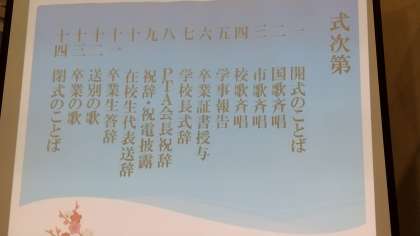 式次第
一 開式のことば
二 国歌斉唱
三 市歌斉唱
四 校歌斉唱
五 学事報告
六 卒業証書授与
七 学校長式辞
八 PTA会長祝辞
九 祝辞・祝電披露
十 在校生代表送辞
十一 卒業生答辞
十二 送別の歌
十三 卒業の歌
十四 閉式のことば